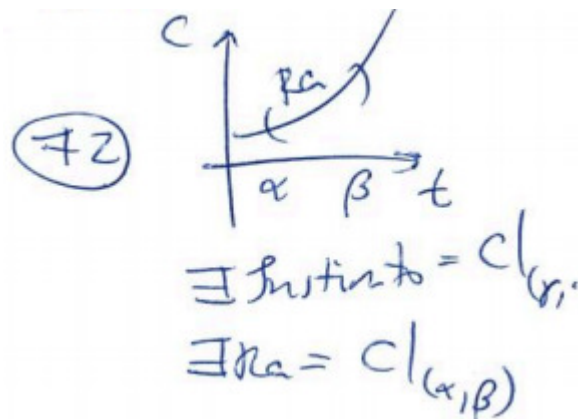 C
Ra
72
α β t
∃ Instinto = C|(γ,
∃ Ra = C|(α,β)